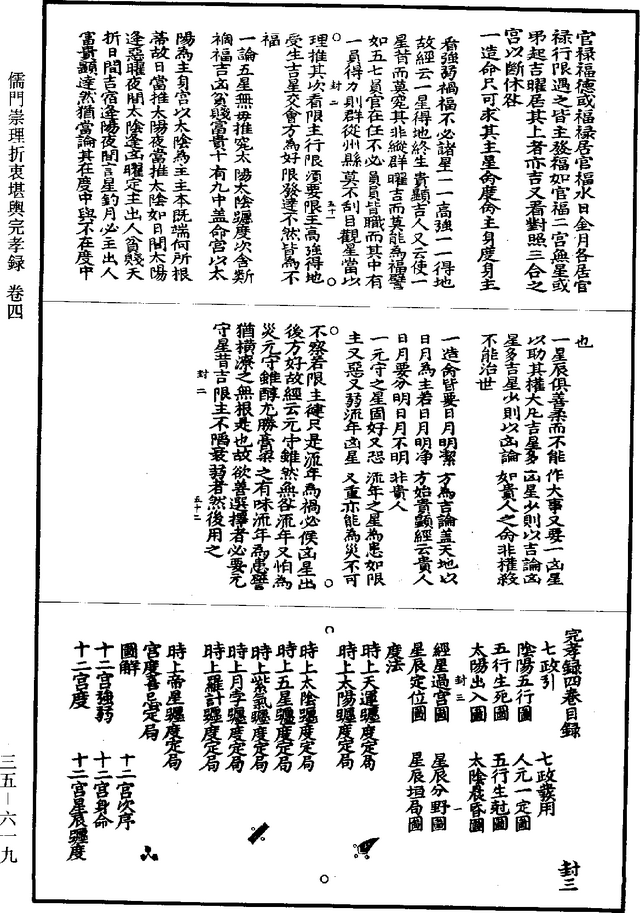 官禄福德或福禄居官福水日金月各居官
禄行限遇之皆主發福如官福二宮無星或
吊起吉曜居其上者亦吉又看對照三合之
宮以斷休咎
一造命只可求其主星命度命主身度身主
看強弱禍福不必諸星一一高強一一得地
故經云一星得地終生貴顯吉人又云使一
星昔而莫究其非縱群曜吉而莫能為福譬
如五七員官在任不必員員皆職而其中有
一員得力則群從州縣莫不刮目觀星當以
理推其次看限主行限須要限主高強得地
受生吉星交會方為好限發達不然皆為不
福
一論五星無毋推究太陽太陰躔度次含斷
禍福吉凶貧賤富貴十有九中盖命宮以太
陽為主身宮以太陰為主主本既端何所根
蒂故日當推太陽夜當推太陰如日間太陽
逢惡曜夜間太陰逢凶曜定主出人貧賤夭
折日間吉宿逢陽夜間吉星釣月必主出人
富貴顯達然猶當論其在度中與不在度中
也
一星辰俱善柔而不能作大事又要一凶星
以助其權大凡吉星多凶星少則以吉論凶
星多吉星少則以凶論如貴人之命非權殺
不能治世
一造命皆要日月明潔方為吉論盖天地以
日月為主若日月明净方始貴顯經云貴人
日月要分明日月不明非貴人
一元守之星固好又忌流年之星為患如限
主又惡又弱流年凶星又重亦能為災不可
不察若限主健只是流年為禍必候凶星出
後方好故經云元守雖然無咎流年又怕為
災元守雖醇尤勝膏粱之有味流年為患譬
猶横潦之無根是也故欲善選擇者必要元
守星昔吉限主不陷衰弱者然後用之
完孝録四卷目録
七政引 七政載用
陰陽五行圖 人元一定圖
五行生死圖 五行生尅圖
太陽出入圖 太陰晨昏圖
經星過宮圖 星辰分野圖
星辰定位圖 星辰垣局圖
度法
時上天運躔度定局
時上太陽躔度定局
時上太陰躔度定局
時上五星躔度定局
時上紫氣躔度定局
時上月孛躔度定局
時上羅計躔度定局
時上帝星躔度定局
宮度喜忌定局
圖解 十二宮次序
十二宮強弱 十二宮身命
十二宮度 十二宮星辰躔度
封二
五十一
封二
五十二
封三
一
封三
儒門崇理折衷堪輿完孝録 卷四
三五－六一九